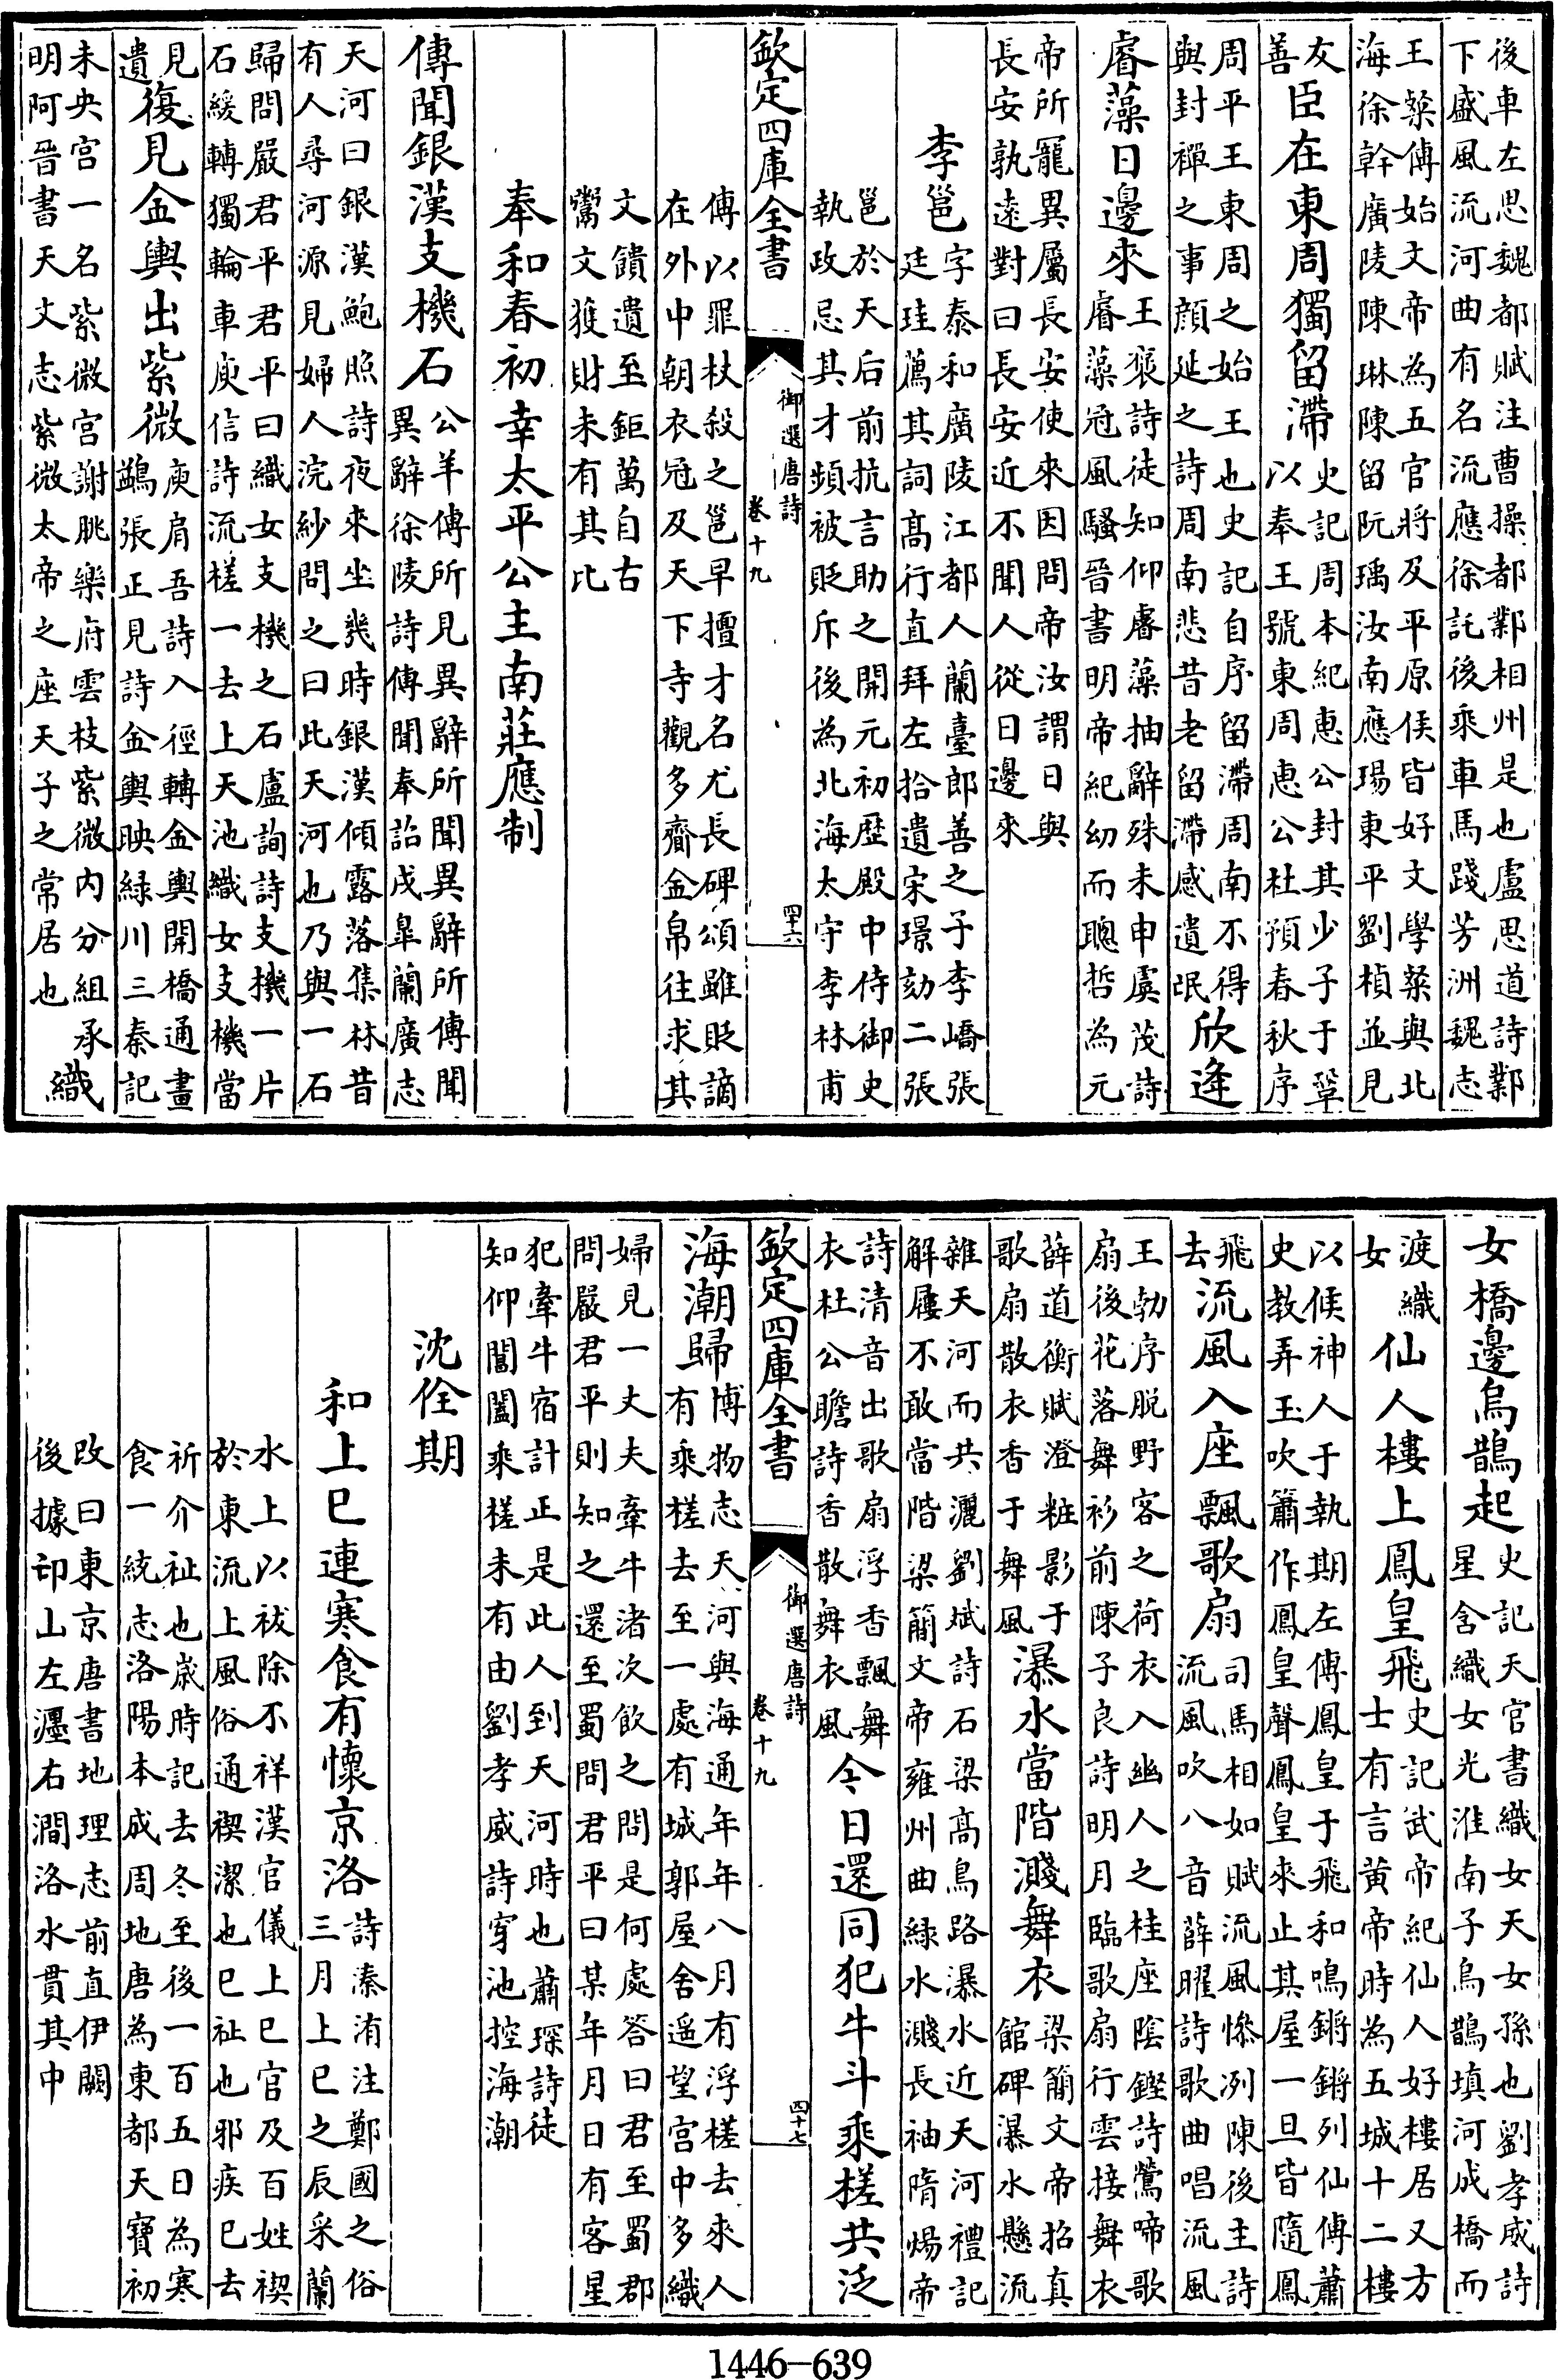 後車左思魏都賦注曹操都鄴相州是也盧思道詩鄴
下盛風流河曲有名流應徐託後乘車馬踐芳洲魏志
王粲傳始文帝為五官將及平原侯皆好文學粲與北
海徐幹廣陵陳琳陳留阮瑀汝南應瑒東平劉楨並見
友善臣在東周獨留滯史記周本紀惠公封其少子于鞏
以奉王號東周惠公杜預春秋序
周平王東周之始王也史記自序留滯周南不得
與封禪之事顔延之詩周南悲昔老留滯感遺氓欣逢
睿藻日邊來王褒詩徒知仰睿藻抽辭殊未申虞茂詩
睿藻冠風騷晉書明帝紀幼而聰哲為元
帝所寵異屬長安使來因問帝汝謂日與
長安孰遠對曰長安近不聞人從日邊來
李邕字泰和廣陵江都人蘭臺郎善之子李嶠張
廷珪薦其詞髙行直拜左拾遺宋璟劾二張
邕於天后前抗言助之開元初歴殿中侍御史
執政忌其才頻被貶斥後為北海太守李林甫
欽定四庫全書
御選唐詩
卷十九
四十六
傅以罪杖殺之邕早擅才名尤長碑頌雖貶謫
在外中朝衣冠及天下寺觀多齎金帛往求其
文饋遺至鉅萬自古
鬻文獲財未有其比
奉和春初幸太平公主南莊應制
傳聞銀漢支機石公羊傳所見異辭所聞異辭所傳聞
異辭徐陵詩傳聞奉詔戍臯蘭廣志
天河曰銀漢鮑照詩夜來坐幾時銀漢傾露落集林昔
有人尋河源見婦人浣紗問之曰此天河也乃與一石
歸問嚴君平君平曰織女支機之石盧詢詩支機一片
石緩轉獨輪車庾信詩流槎一去上天池織女支機當
見遺復見金輿出紫微庾肩吾詩入徑轉金輿開橋通畫
鷁張正見詩金輿映緑川三秦記
未央宫一名紫微宫謝朓樂府雲枝紫微内分組承
明阿晉書天文志紫微太帝之座天子之常居也織
女橋邊烏鵲起史記天官書織女天女孫也劉孝威詩
星含織女光淮南子烏鵲填河成橋而
渡織女仙人樓上鳳皇飛史記武帝紀仙人好樓居又方
士有言黄帝時為五城十二樓
以候神人于執期左傳鳳皇于飛和鳴鏘鏘列仙傳蕭
史教弄玉吹簫作鳳皇聲鳳皇來止其屋一旦皆隨鳳
飛去流風入座飄歌扇司馬相如賦流風慘冽陳後主詩
流風吹八音薛曜詩歌曲唱流風
王勃序脱野客之荷衣入幽人之桂座陰鏗詩鶯啼歌
扇後花落舞衫前陳子良詩明月臨歌扇行雲接舞衣
薛道衡賦澄粧影于
歌扇散衣香于舞風瀑水當階濺舞衣梁簡文帝招真
館碑瀑水懸流
雜天河而共灑劉斌詩石梁髙鳥路瀑水近天河禮記
解屨不敢當階梁簡文帝雍州曲緑水濺長袖隋煬帝
詩清音出歌扇浮香飄舞
衣杜公瞻詩香散舞衣風今日還同犯牛斗乘槎共泛
欽定四庫全書
御選唐詩
卷十九
四十七
海潮歸博物志天河與海通年年八月有浮槎去來人
有乘槎去至一處有城郭屋舍遥望宫中多織
婦見一丈夫牽牛渚次飲之問是何處答曰君至蜀郡
問嚴君平則知之還至蜀問君平曰某年月日有客星
犯牽牛宿計正是此人到天河時也蕭琛詩徒
知仰閶闔乘槎未有由劉孝威詩穿池控海潮
沈佺期
和上巳連寒食有懷京洛詩溱洧注鄭國之俗
三月上巳之辰采蘭
水上以祓除不祥漢官儀上巳官及百姓禊
於東流上風俗通禊潔也巳祉也邪疾巳去
祈介祉也嵗時記去冬至後一百五日為寒
食一統志洛陽本成周地唐為東都天寶初
改曰東京唐書地理志前直伊闕
後據邙山左瀍右澗洛水貫其中
1446-639